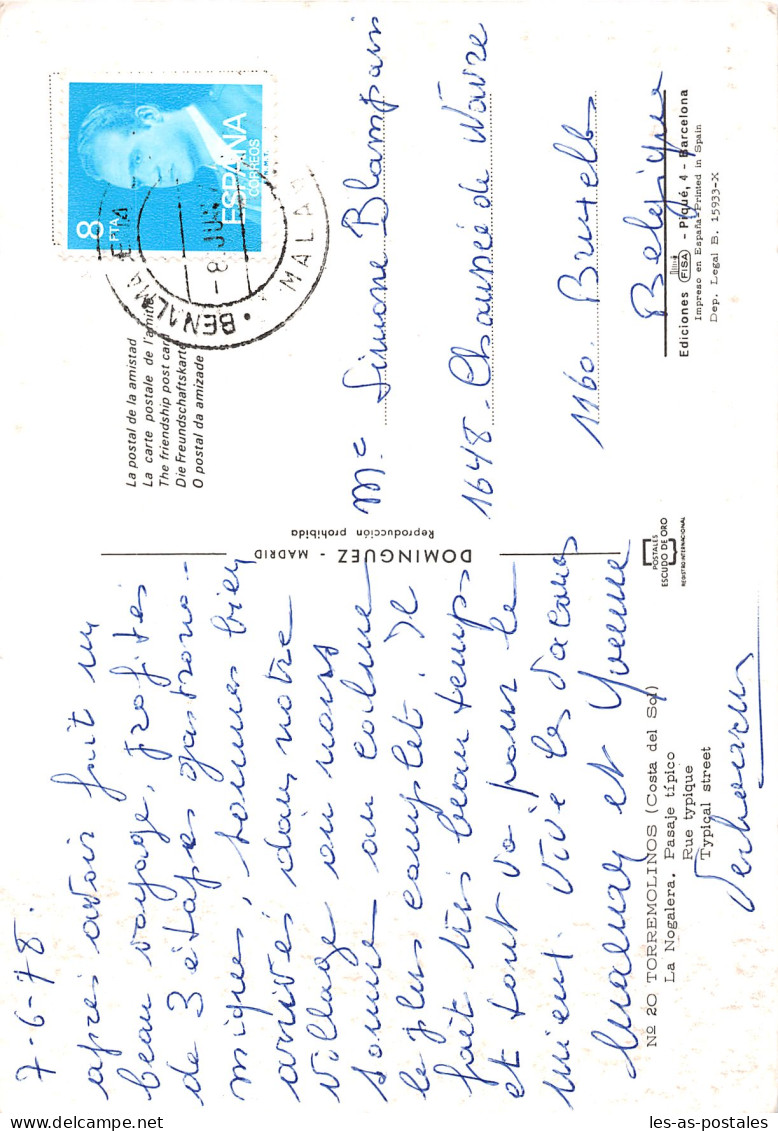 7-6-78.
après avoir fait un
beau voyage, profités
de 3 étapes gastrono-
miques, sommes bien
arrivés dans notre
village où nous
sommes au calme
le plus complet. Il
fait très beau temps
et tout va pour le
mieux. Vive les vacances
et Yvonne
Nº 20 TORREMOLINOS (Costa del Sol)
La Nogalera. Pasaje típico
Rue typique
Typical street
DOMINGUEZ - MADRID
Reproducción prohibida
POSTALES
ESCUDO DE ORO
REGISTRO INTERNACIONAL
La postal de la amistad
La carte postale de l'amitié
The friendship post card
Die Freundschaftskarte
O postal da amizade
8 PTA
ESPAÑA
CORREOS
F.N.M.T.
BENALMADENA
-8 JUN
MALAG
Mc Simone Blampain
1648 - Chaussée de Wavre
1160. Bruxelles
Belgique
Ediciones FISA - Piqué, 4 - Barcelona
Impreso en España-Printed in Spain
Dep. Legal B. 15933-X
les-as-postales